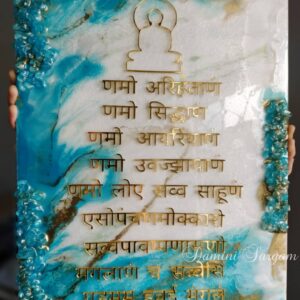 णमो अरिहंताणं
णमो सिद्धाणं
णमो आयरियाणं
णमो उवज्झायाणं
णमो लोए सव्व साहूणं
एसोपंचणमोक्कारो
सव्वपावप्पणासणो
मंगलाणं च सव्वेसिं
Kamini Sargam